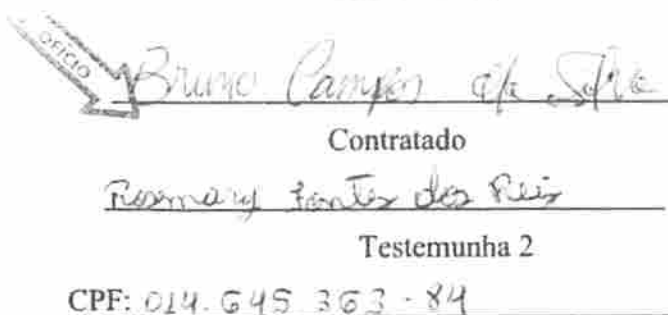 OFÍCIO
Bruno Campos da Silva
Contratado
Rosemary Fontes dos Reis
Testemunha 2
CPF: 014.645.363-84